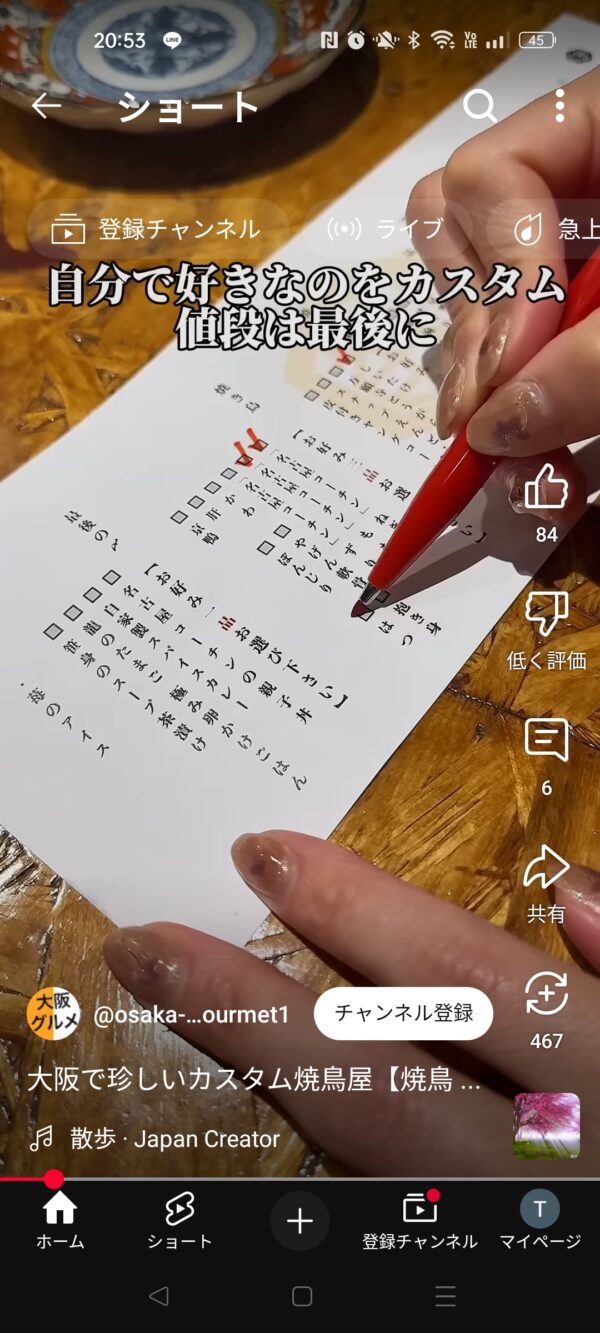 20:53
LINE
Vo
LTE
45
ショート
登録チャンネル
ライブ
急上
自分で好きなのをカスタム
値段は最後に
焼き鳥
【お好み三品お選
名古屋コーチン
名古屋コーチン
か
わ
肝
京鴨
ねぎ
もも
ずり
やげん軟骨
ぼんじり
抱き身
はつ
最後の〆
【お好み一品お選び下さい】
名古屋コーチンの親子丼
自家製スパイスカレー
龍のたまご 極み卵かけごはん
笹身のスープ茶漬け
苺のアイス
84
低く評価
6
共有
467
大阪
グルメ
@osaka-...ourmet1
チャンネル登録
大阪で珍しいカスタム焼鳥屋【焼鳥 ...
散歩・Japan Creator
ホーム
ショート
登録チャンネル
T
マイページ